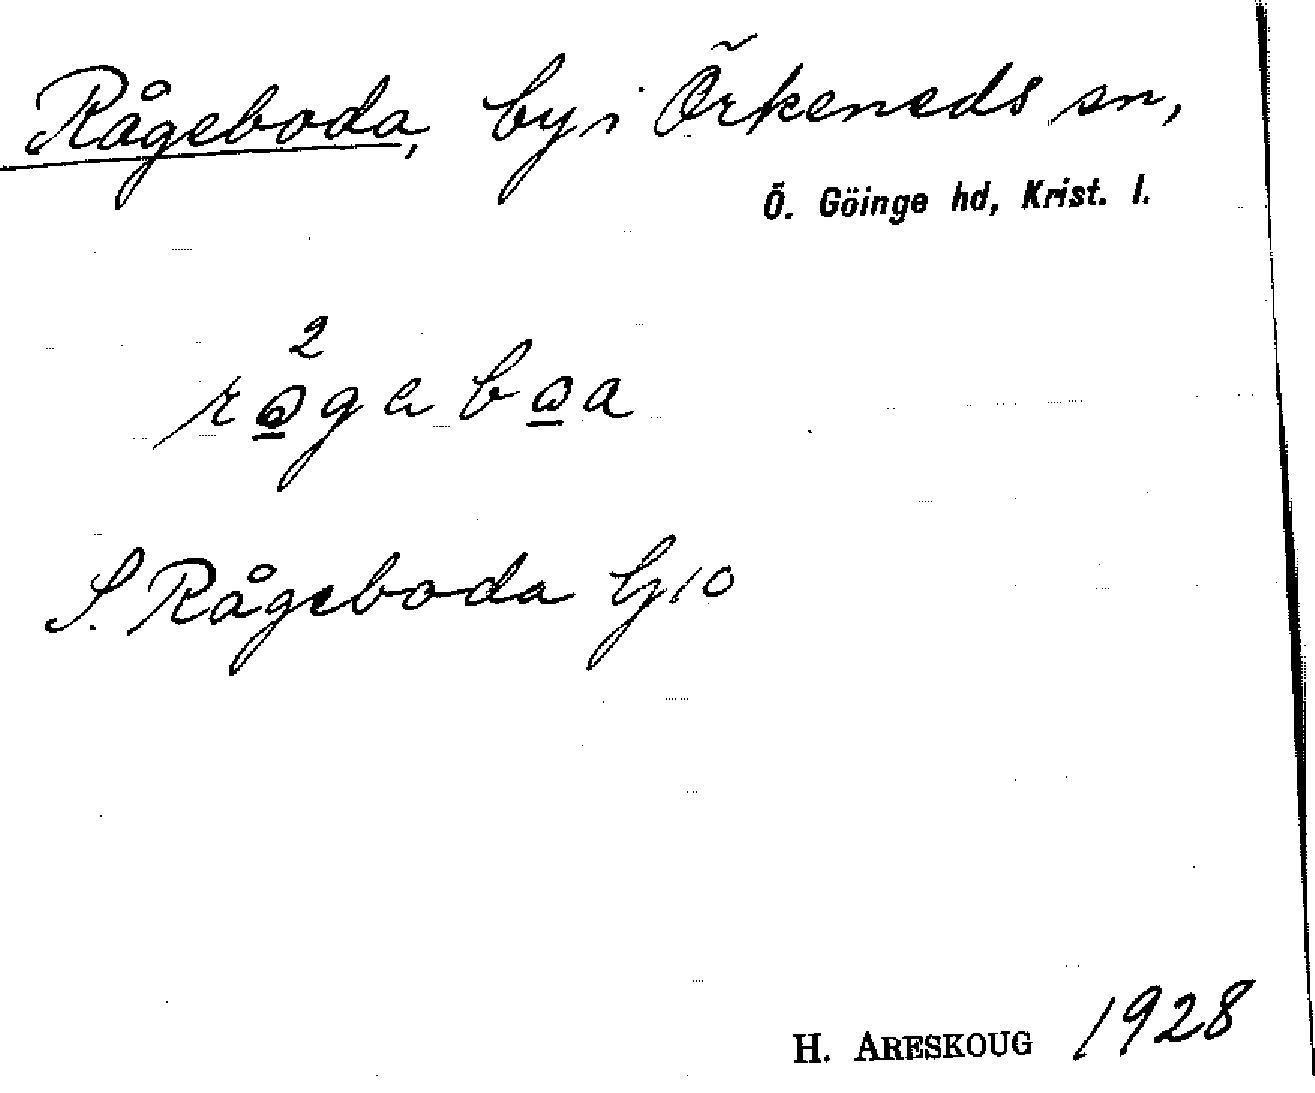 Rågeboda, by i Örkeneds sn,
Ö. Göinge hd, Krist. l.
S. Rågeboda G10
H. ARESKOUG 1928